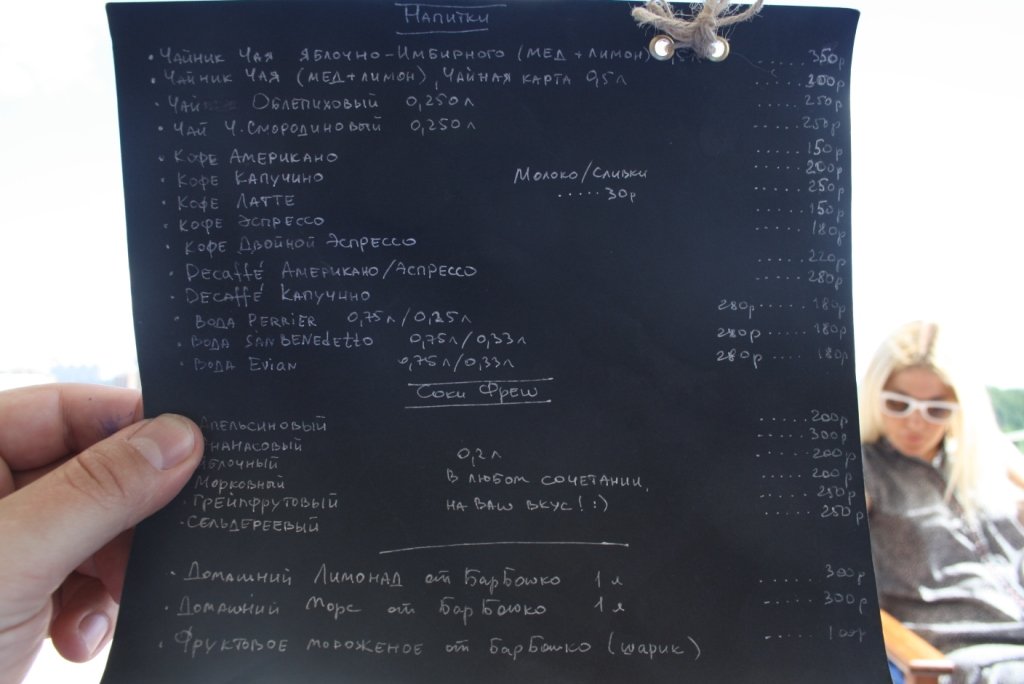 Напитки
• Чайник Чая Яблочно-Имбирного (мед + лимон) ..... 350р
• Чайник Чая (мед+лимон), Чайная карта 0,5л ..... 200р
• Чай Облепиховый 0,250л ..... 250р
• Чай Ч.Смородиновый 0,250л ..... 250р
• Кофе Американо ..... 150р
• Кофе Капучино ..... 200р
• Кофе Латте ..... 250р
• Кофе Эспрессо ..... 150р
• Кофе Двойной Эспрессо ..... 180р
Молоко/Сливки
..... 30р
• Decaffé Американо/Аспрессо ..... 220р
• Decaffé Капучино ..... 280р
• Вода Perrier 0,75л/0,25л 280р ..... 180р
• Вода San Benedetto 0,75л/0,33л 280р ..... 180р
• Вода Evian 0,75л/0,33л 280р ..... 180р
Соки Фреш
Апельсиновый ..... 200р
Ананасовый ..... 300р
Яблочный ..... 200р
Морковный ..... 200р
Грейпфрутовый ..... 250р
• Сельдереевый ..... 250р
0,2л
В любом сочетании,
на ваш вкус! :)
• Домашний Лимонад от БарБошко 1л ..... 300р
• Домашний Морс от БарБошко 1л ..... 300р
• Фруктовое мороженое от БарБошко (шарик) ..... 100р